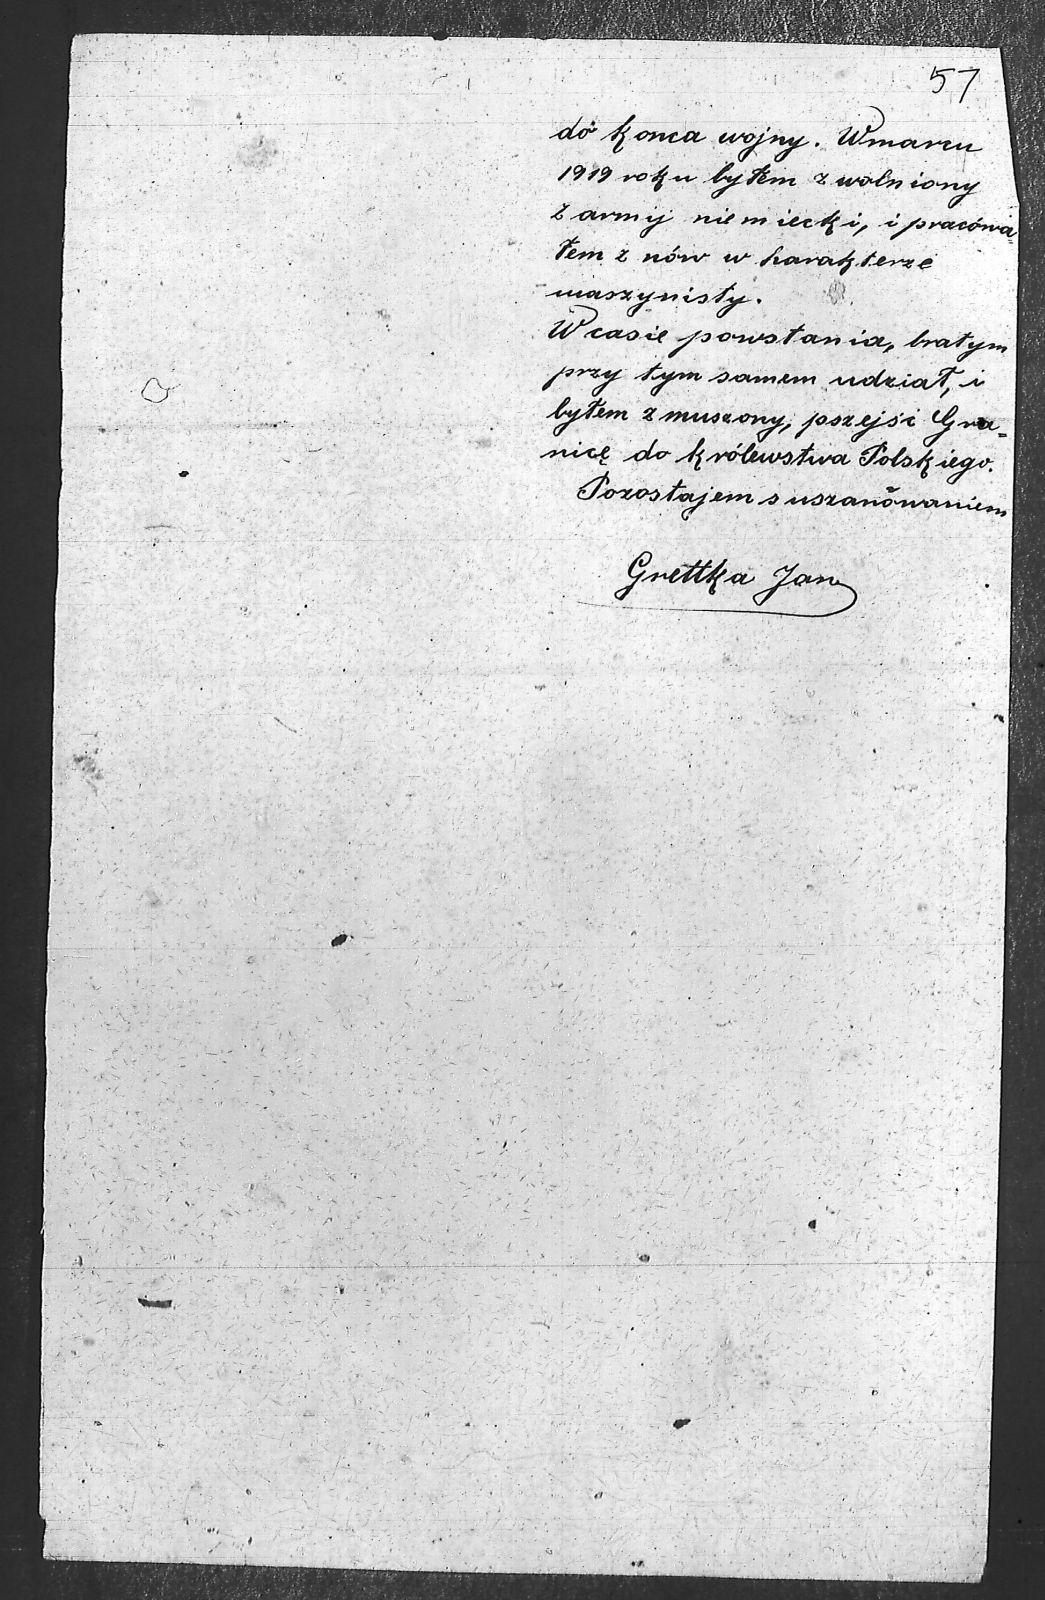 57
do konca wojny. W marcu
1919 roku byłem zwolniony
z armij niemiecki, i pracówa-
łem znów w harakterze
maszynisty.
W casie powstania, bratym
przy tym samem udział, i
byłem zmuszony, pszejśi Gra-
nicę do królewstwa Polskiego.
Pozostajem s uszanówaniem
Grettka Jan